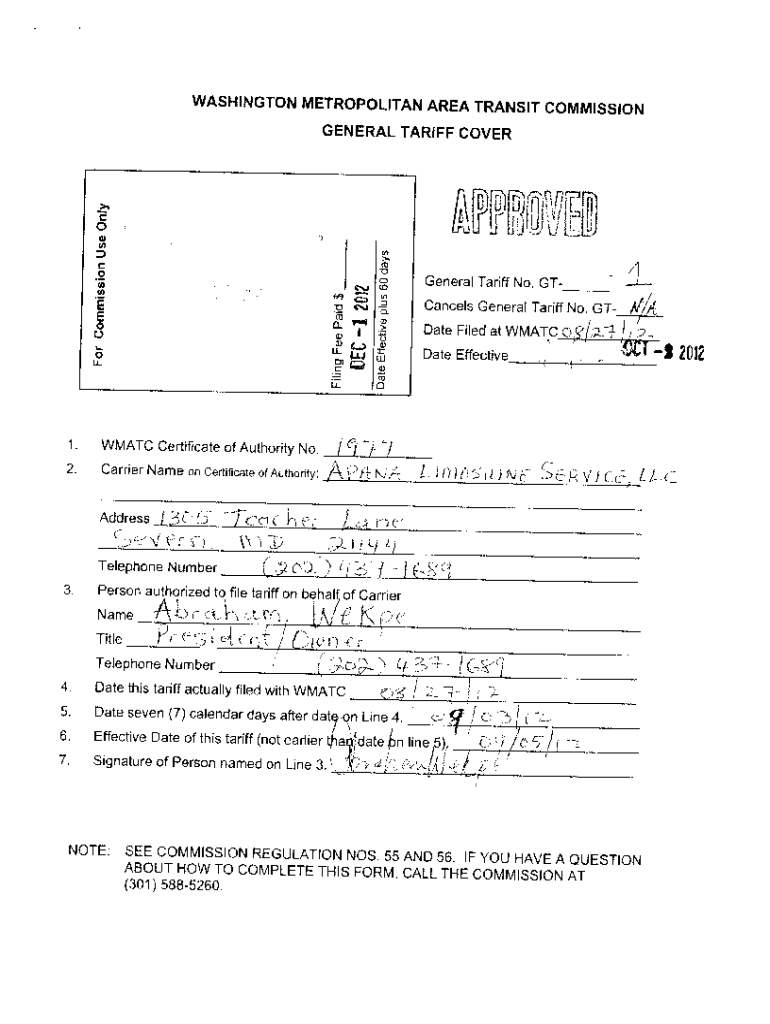 WASHINGTON METROPOLITAN AREA TRANSIT COMMISSION
GENERAL TARIFF COVER
For Commission Use Only
Filing Fee Paid $
DEC -1 2012
Date Effective plus 60 days
APPROVED
General Tariff No. GT- 1
Cancels General Tariff No. GT- N/A
Date Filed at WMATC 08/27/12
Date Effective OCT - 2012
1. WMATC Certificate of Authority No. 1977
2. Carrier Name on Certificate of Authority: APANA LIMOSIUNE SERVICE, LLC
Address 1305 Teache Lane
Severn MD 21144
Telephone Number (202) 437-1689
3. Person authorized to file tariff on behalf of Carrier
Name Abraham, WeKpe
Title President/Owner
Telephone Number (202) 437-1689
4. Date this tariff actually filed with WMATC 08/27/12
5. Date seven (7) calendar days after date on Line 4. 09/03/12
6. Effective Date of this tariff (not earlier than date on line 5), 09/05/12
7. Signature of Person named on Line 3.
NOTE: SEE COMMISSION REGULATION NOS. 55 AND 56. IF YOU HAVE A QUESTION
ABOUT HOW TO COMPLETE THIS FORM, CALL THE COMMISSION AT
(301) 588-5260.